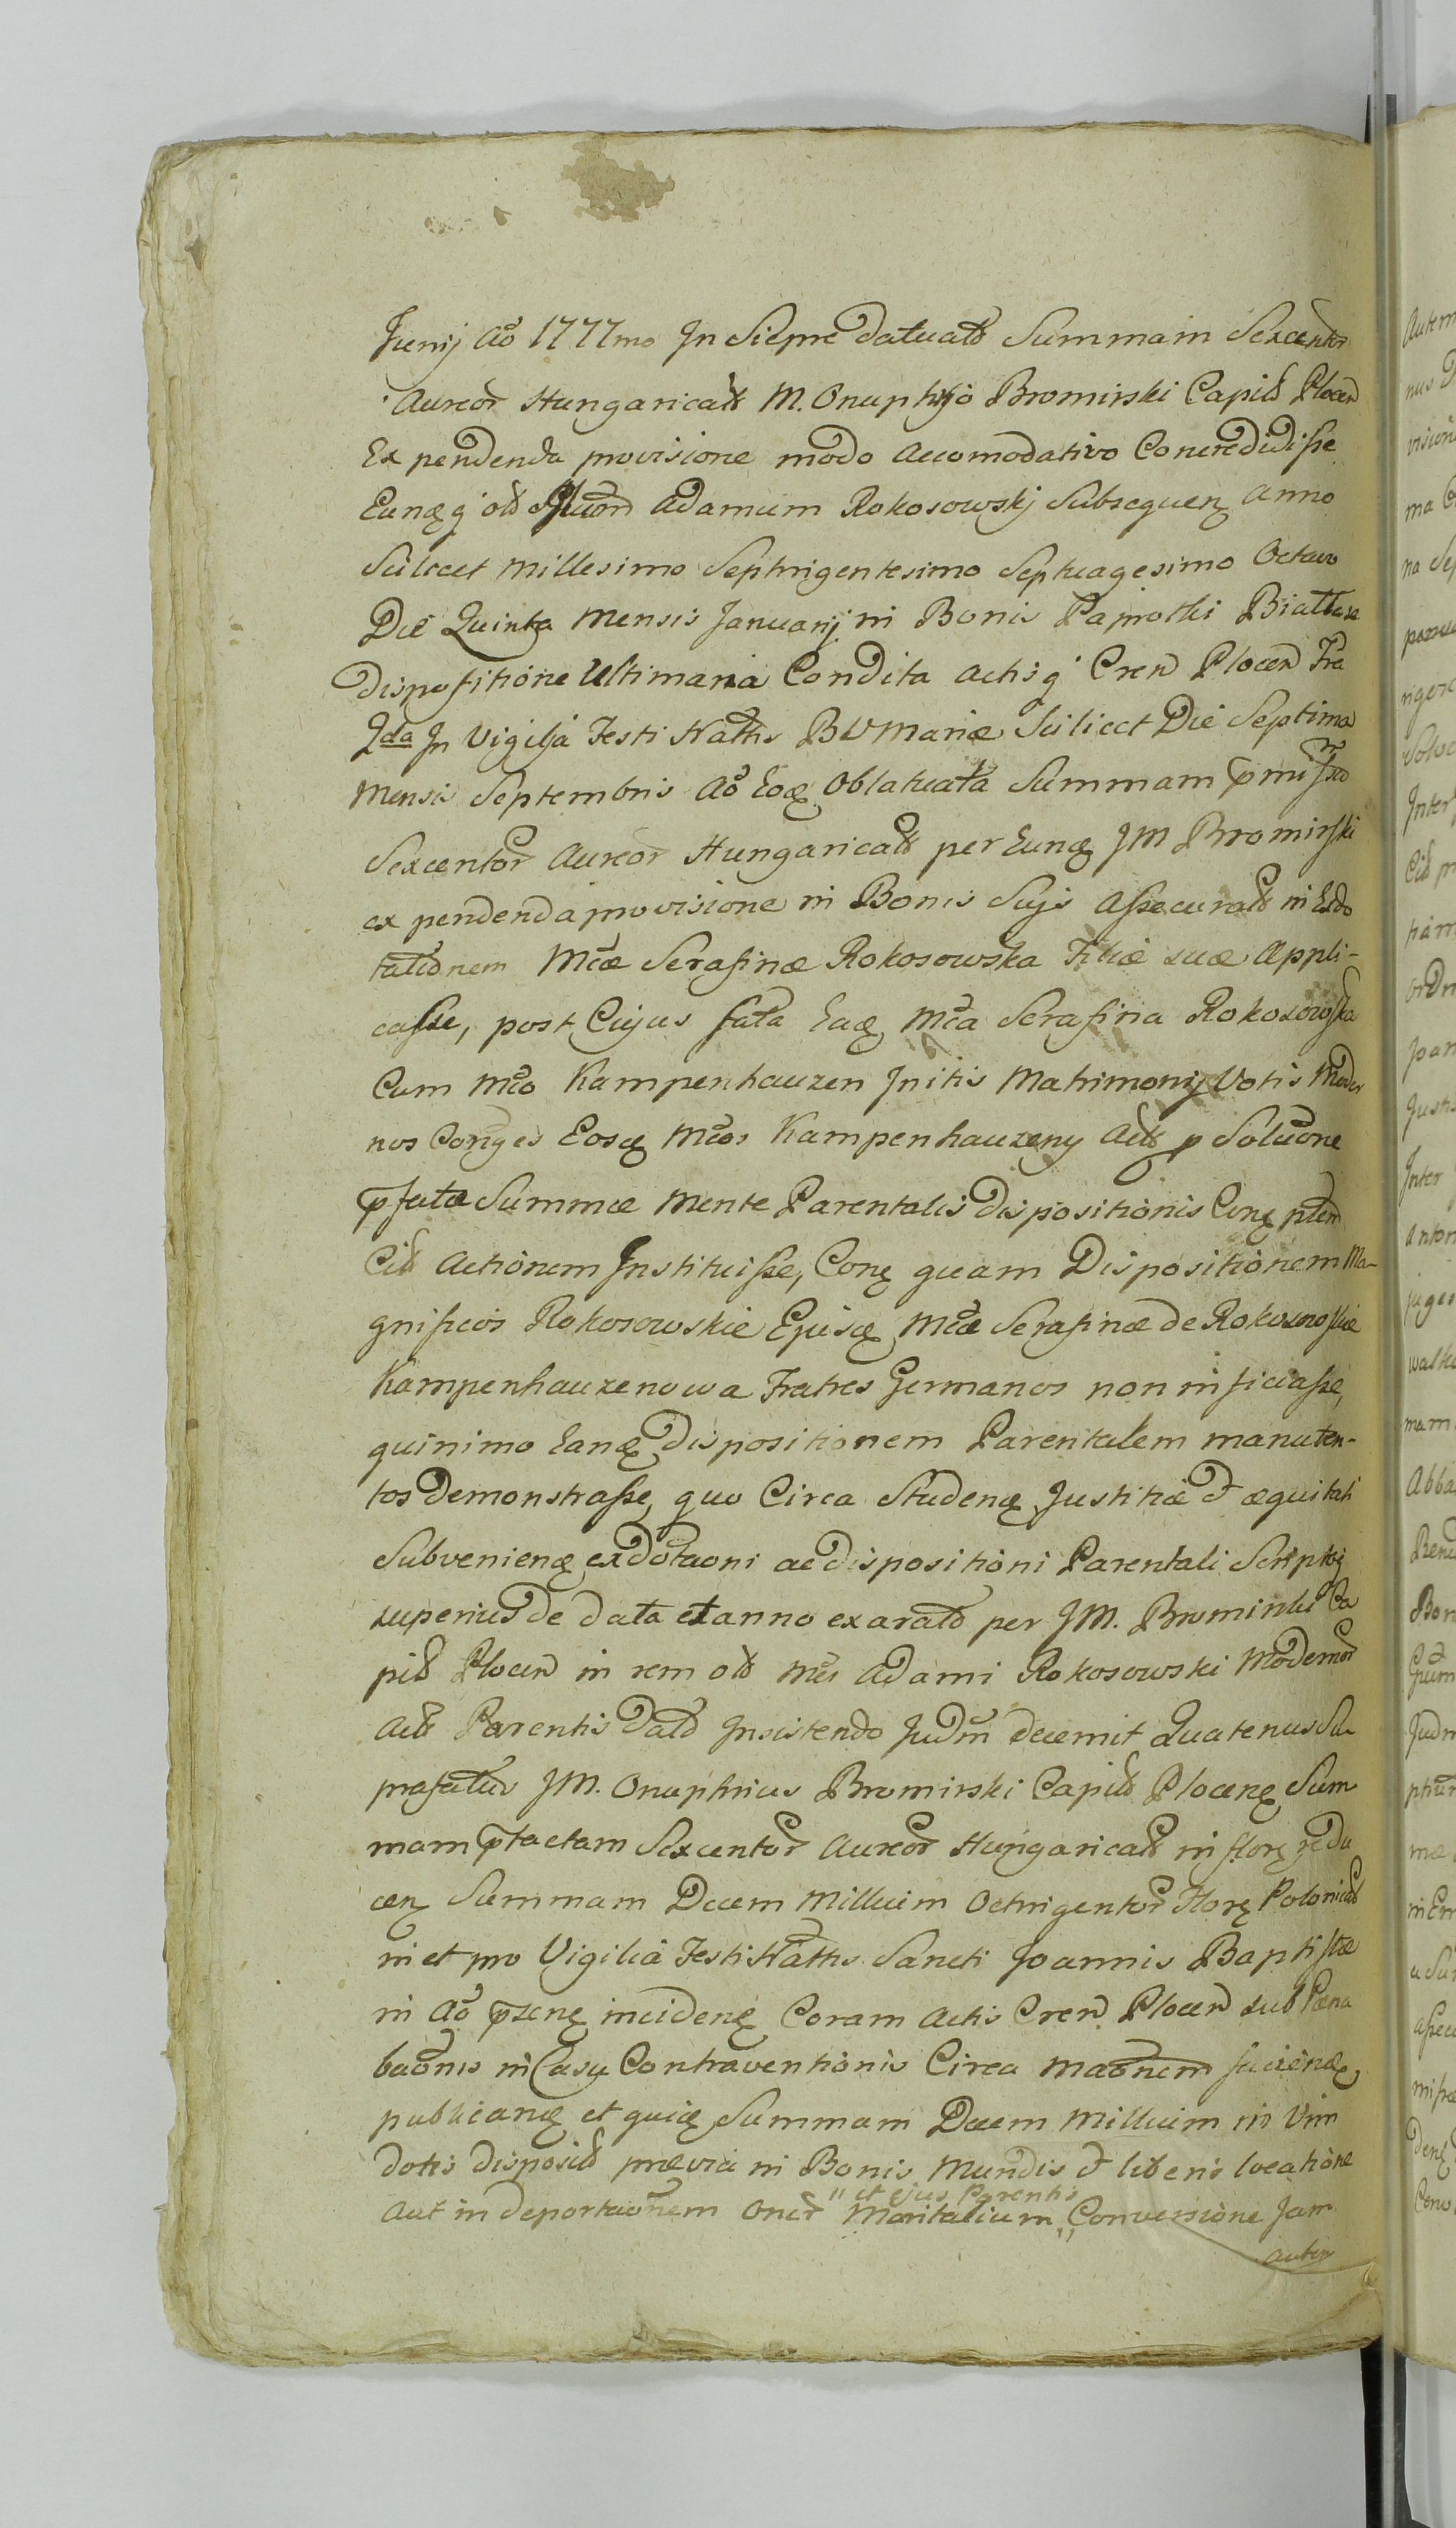 Junij Ao 1777mo In Siepre datuatt Summam Sexcentor
Aureor Hungaricatt M. Onuphrjo Bromirski Capitt Plocen
Ex pendenda provisione modo Accomodativo Concredidisse
Eunęq ott Adamum Rokosowskj Subsequenę Anno
Scilicet Millesimo Septingentesimo Septuagesimo Octavo
Die Quinta Mensis Januarij in Bonis
dispositione Ultimaria Condita Actisq Cren Plocen Fra
2da In Vigilja Festi Nattis BVMariæ Scilicet Die Septima
Mensis Septembris Ao Eoę Oblatuata Summam pmissa
Sexcentor Aureor Hungaricatt per Eunę JM Bromirski
ex pendenda provisione in Bonis Sujs Assecuratt in Exdo
tationem Mcæ Serafinæ Rokosowska Filiæ suæ Appli-
casse, post Cujus fata Eaę Mca Serafina Rokosowska
Cum Mco Kampenhauzen Initis Matrimonij Votis Moder
nos Conges Eosę Mcos Kampenhauzeny Actt p Soluone
pfatæ Summæ Mente Parentalis dispositionis Cinę ptem
Citt Actionem Instituisse, Conę quam Dispositionem Ma-
gnificos Rokosowskie Ejusę Mcæ Serafinæ de Rokosowskie
Kampenhauzenowa Fratres Germanos non inficiasse,
quinimo Eanę dispositionem Parentalem manuten-
tos demonstrasse, quo Circa Studenę Justitiæ et æquitati
Subvenienę exdotaoni ac dispositioni Parentali Scriptoj
superius de data et anno exaratt per JM. Bromirski Ca
pitt Plocen in rem ott Mci Adami Rokosowski Modernor
Actt Parentis datt Insistendo Judm decernit Quatenus Su
prafatus JM. Onuphrius Bromirski Capitt Plocenę Sum
mam ptactam Sexcentor Aureor Hungaricatt in florę redu
cenę Summam Decem Millium Octingentor Florę Polonicatt
in et pro Vigilia Festi Nattis Sancti Joannis Baptistæ
in Ao pzenę incidenę Coram Actis Cren Plocen sub Pæna
baonis in Casu Contraventionis Circa Maonem facienę
publicanę et quię Summam Decem Millium in Vim
dotis dispositt prævia in Bonis Mundis et liberis locatione
"et ejus Parentis
Aut in deportaonem Oner Maritalium "Conversione Jam
autem